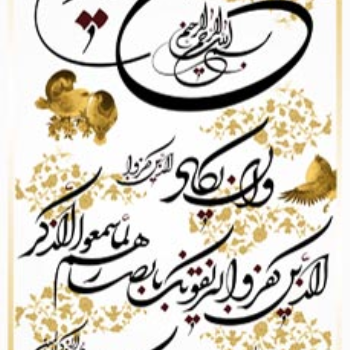 بسم الله الرحمن الرحیم
وان یکاد
الذین کفروا
الذین کفروا لیزلقونک بابصارهم لما سمعوا الذکر